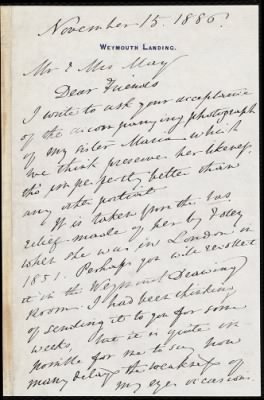 November 15. 1886.
WEYMOUTH LANDING.
Mr & Mrs May
Dear Friends
I write to ask your acceptance
of the accompanying photograph
of my sister Maria which
we think preserves her likeness
tho' imperfectly better than
any other portrait.
It is taken from the bas
relief made of her by
when she was in London in
1851. Perhaps you will recollect
it in the Weymouth Drawing
Room. I had been thinking
of sending it to you for some
weeks, but it is quite im
possible for me to say how
many delays the weakness of
my eyes occasions.